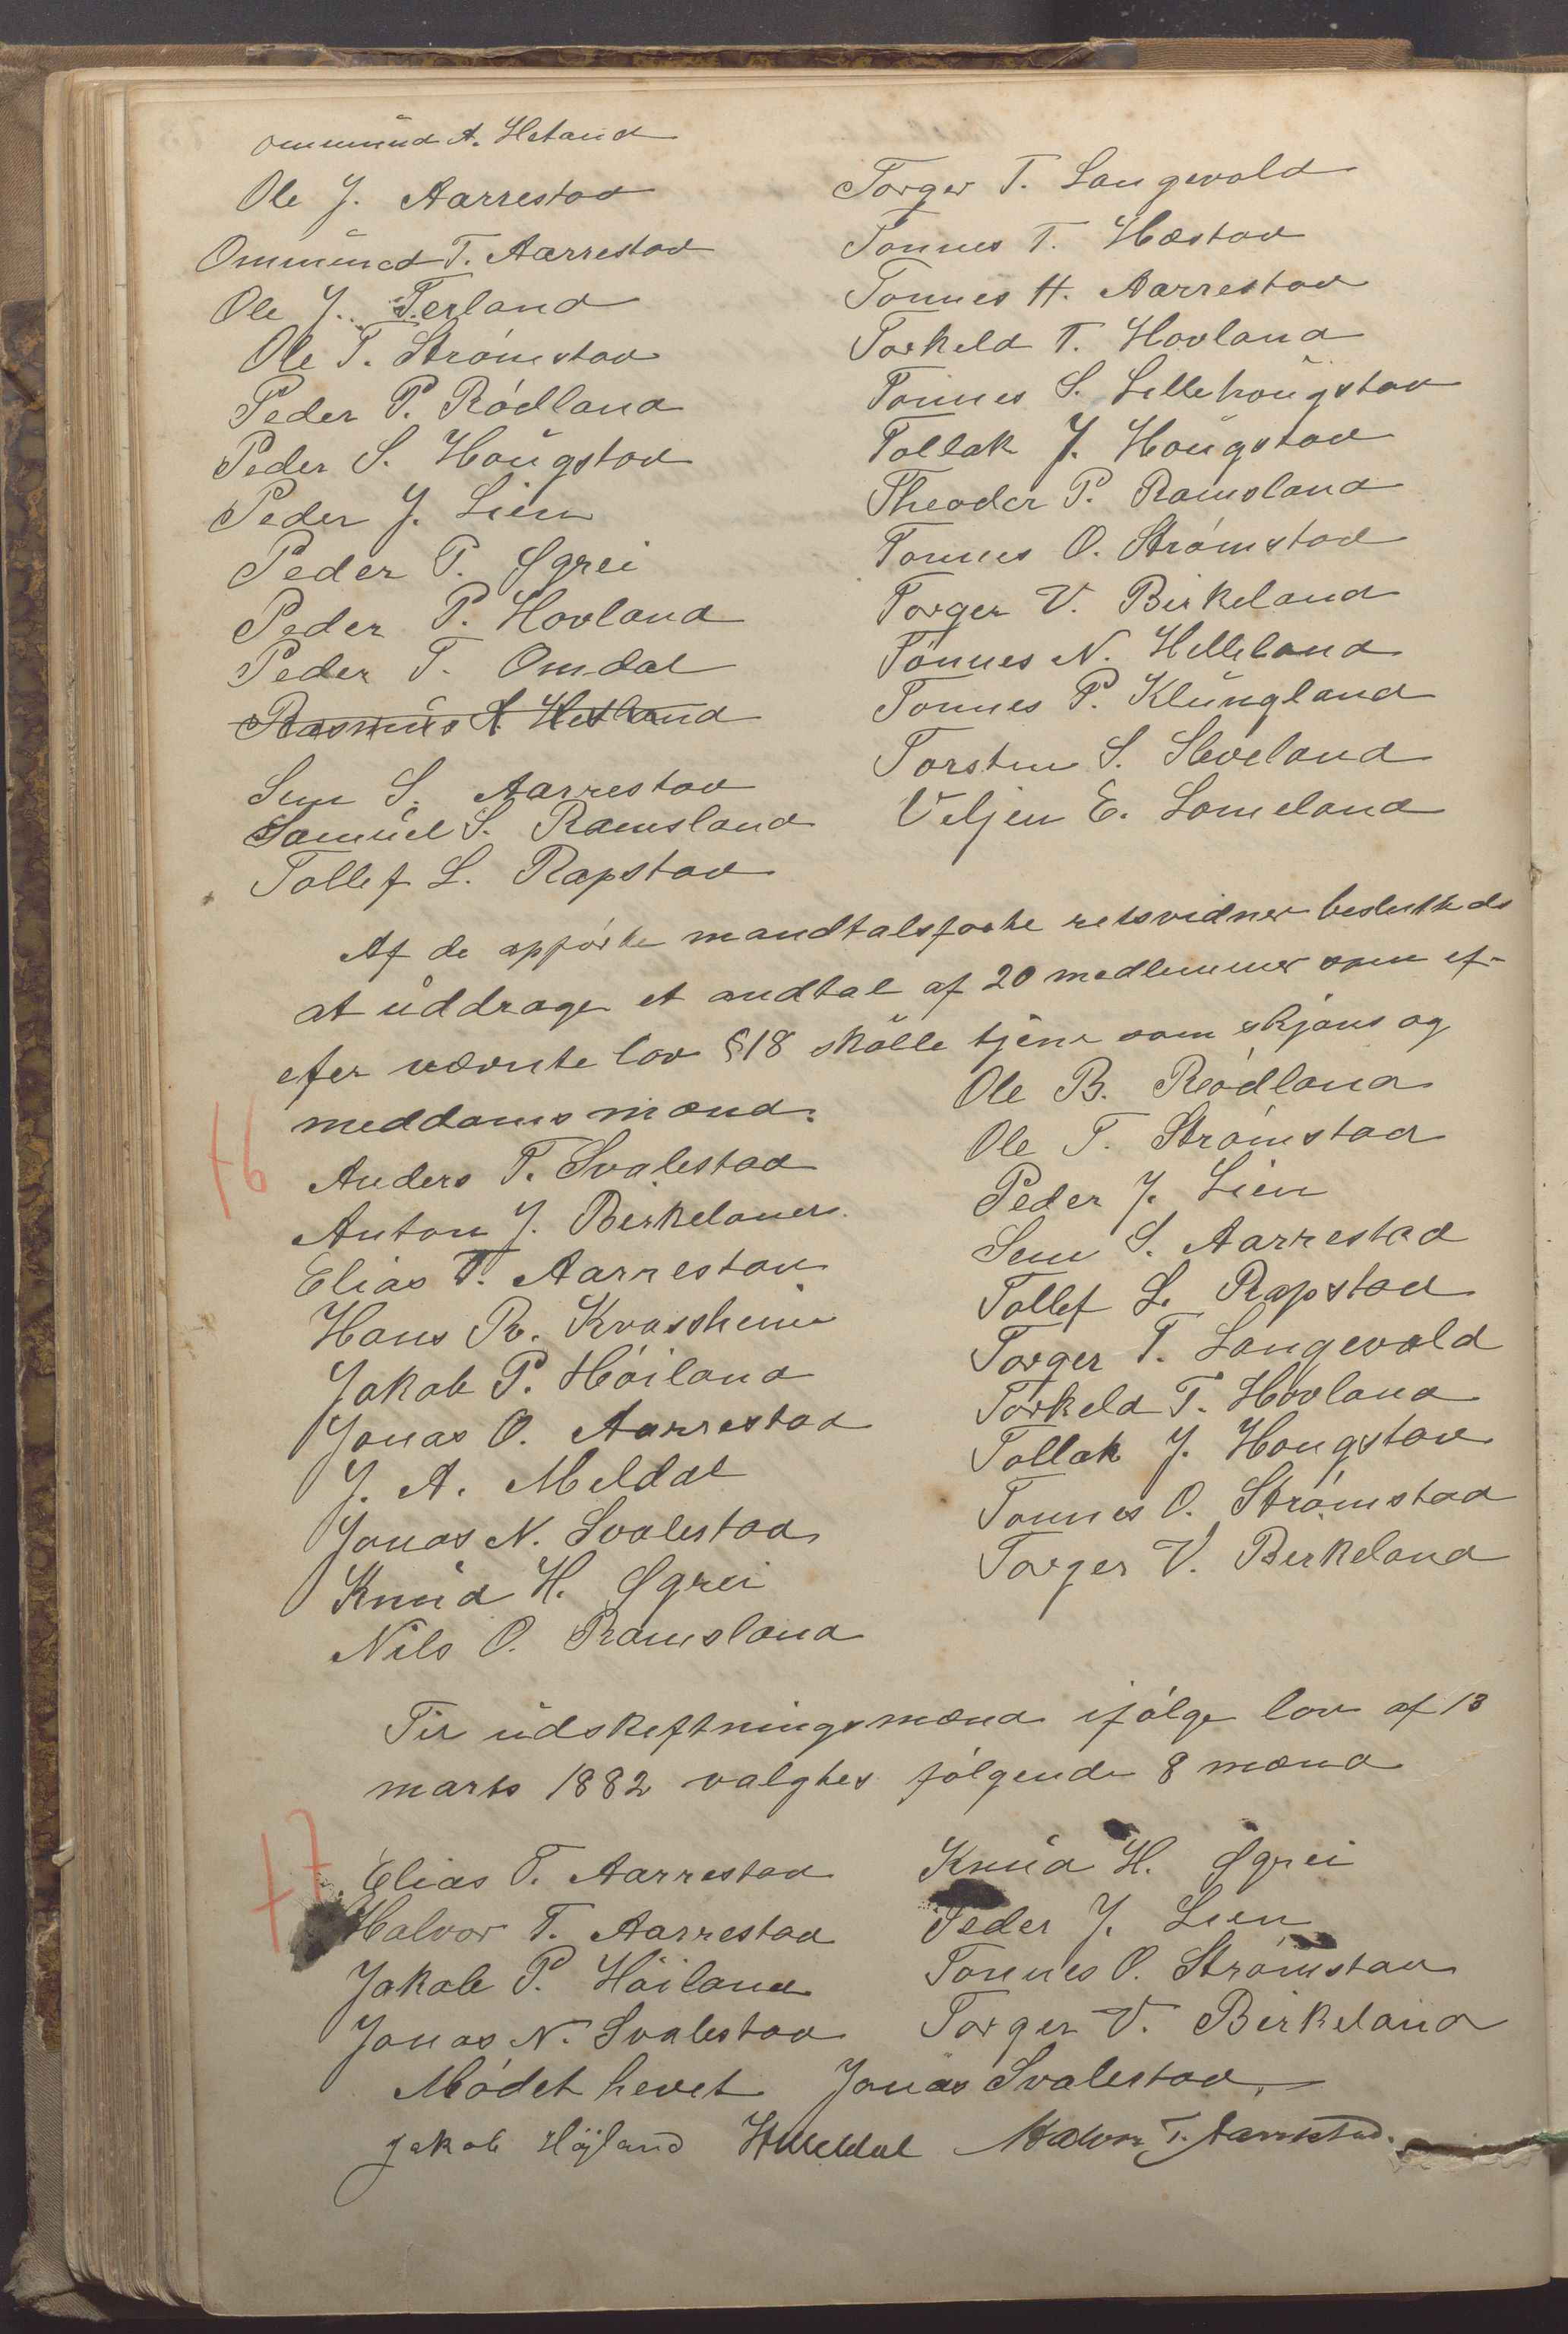 Ommund A. Hetland
Ole J. Aarrestad
Ommund T. Aarrestad
Ole J. Terland
Ole T. Strömstad
Peder P. Rödland
Peder S. Hougstad
Peder J. Lien
Peder P. Ögrei
Peder P. Hovland
Peder T. Omdal
Rasmus A. Hetland
Sem S. Aarrestad
Samuel S. Ramsland
Tollef L. Rapstad
Torger T. Langevald
Tønnes T. Hæstad
Tønnes H. Aarrestad
Torkeld T. Hovland
Tönnes S. Lillehougstad
Tollak J. Hougstad
Theodor P. Ramsland
Tønnes O. Strömstad
Torger V. Birkeland
Tönnes N. Helleland
Tønnes P. Klungland
Torsten S. Sleveland
Veljen E. Lomeland
Af de opförte mandtalsførte retsvidner besluttedes
at uddrage et andtal af 20 medlemmer som ef-
efter nævnte lov § 18 skulle tjene som skjøns og
meddomsmænd:
16
Anders T. Svalestad
Anton J. Birkeland
Elias T. Aarrestad
Hans R. Kvassheim
Jakob P. Höiland
Jonas O. Aarrestad
J. A. Meldal
Jonas N. Svalestad
Knud H. Øgrei
Nils O. Ramsland
Ole B. Rödland
Ole T. Strömstad
Peder J. Lien
Sem S. Aarrestad
Tollef L. Rapstad
Torger T. Langevald
Torkeld T. Hovland
Tollak J. Hougstad
Tønnes O. Strömstad
Torger V. Birkeland
Til udskiftningsmænd ifölge lov af 13
marts 1882 valgtes fölgende 8 mænd
17
Elias T. Aarrestad
Halvor T. Aarrestad
Jakob P. Höiland
Jonas N. Svalestad
Knud H. Øgrei
Peder J. Lien
Tønnes O. Strömstad
Torger V. Birkeland
Mödet hevet Jonas Svalestad
Jakob Höyland Meldal Halvor T. Aarrestad.